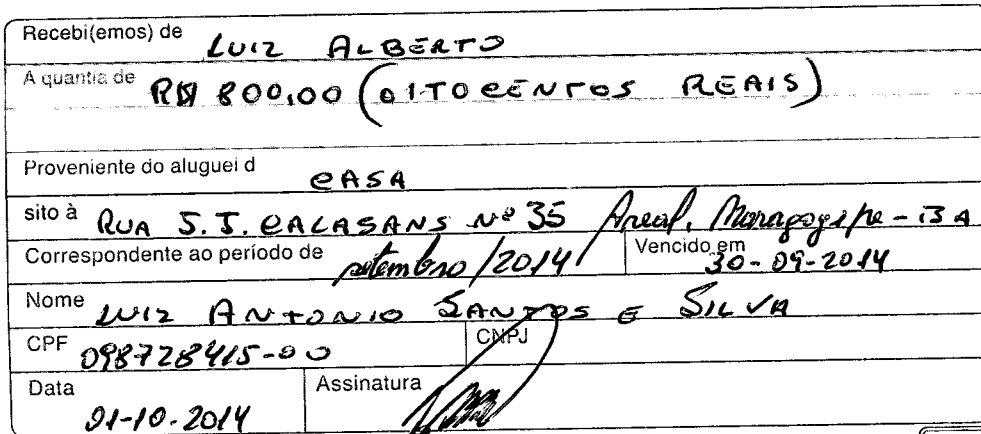 Recebi(emos) de LUIZ ALBERTO
A quantia de R$ 800,00 (OITOCENTOS REAIS)
Proveniente do aluguel d CASA
sito à RUA S. J. CALASANS Nº 35 Areal, Maragogipe - BA
Correspondente ao período de setembro/2014 Vencido em 30-09-2014
Nome LUIZ ANTONIO SANTOS E SILVA
CPF 098728415-00 CNPJ
Data 01-10-2014 Assinatura